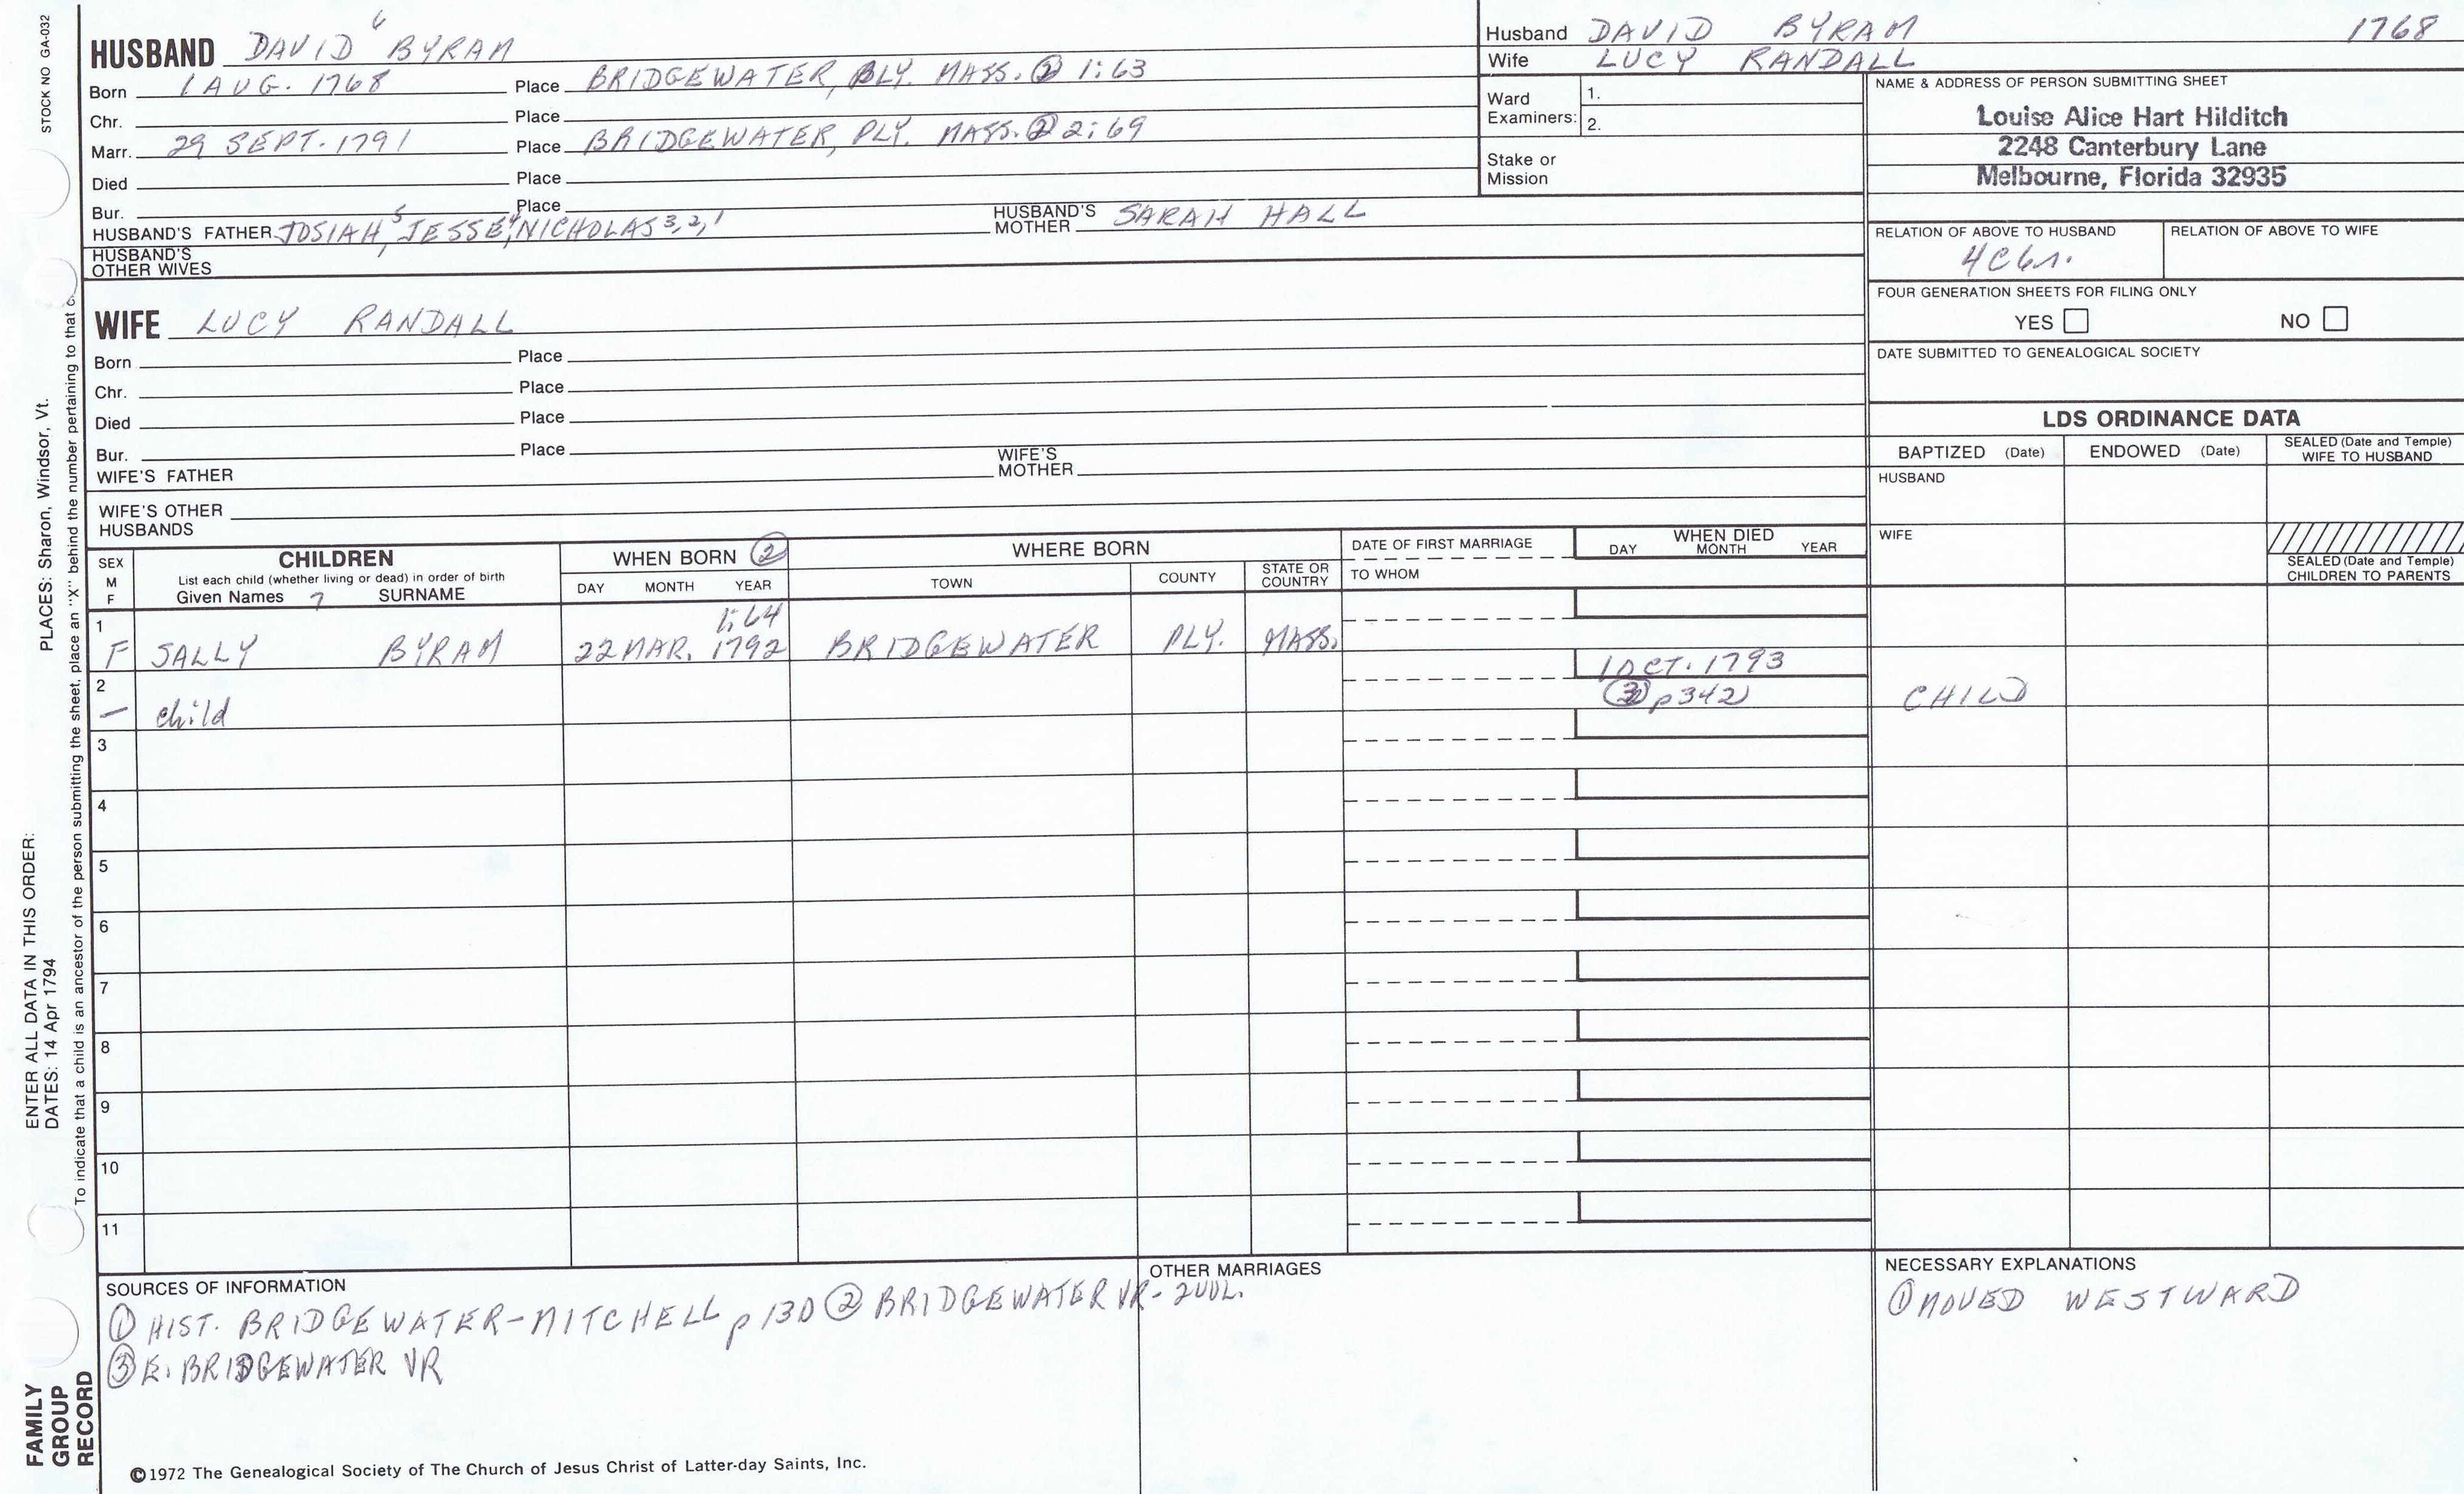 STOCK NO GA-032
PLACES: Sharon, Windsor, Vt.
ENTER ALL DATA IN THIS ORDER:
DATES: 14 Apr 1794
To indicate that a child is an ancestor of the person submitting the sheet, place an "X" behind the number pertaining to that c
FAMILY
GROUP
RECORD
HUSBAND DAVID 6 BYRAM
Born 1 AUG. 1768 Place BRIDGEWATER, PLY. MASS. ② 1:63
Chr. Place
Marr. 29 SEPT. 1791 Place BRIDGEWATER, PLY. MASS. ② 2:69
Died Place
Bur. Place
HUSBAND'S FATHER JOSIAH,5 JESSE,4 NICHOLAS 3,2,1 HUSBAND'S MOTHER SARAH HALL
HUSBAND'S
OTHER WIVES
Husband DAVID BYRAM 1768
Wife LUCY RANDALL
Ward
Examiners:
1.
2.
Stake or
Mission
NAME & ADDRESS OF PERSON SUBMITTING SHEET
Louise Alice Hart Hilditch
2248 Canterbury Lane
Melbourne, Florida 32935
RELATION OF ABOVE TO HUSBAND RELATION OF ABOVE TO WIFE
4C6r.
FOUR GENERATION SHEETS FOR FILING ONLY
YES NO
DATE SUBMITTED TO GENEALOGICAL SOCIETY
WIFE LUCY RANDALL
Born Place
Chr. Place
Died Place
Bur. Place
WIFE'S FATHER WIFE'S MOTHER
WIFE'S OTHER
HUSBANDS
LDS ORDINANCE DATA
BAPTIZED (Date) ENDOWED (Date) SEALED (Date and Temple) WIFE TO HUSBAND
HUSBAND
WIFE
SEALED (Date and Temple)
CHILDREN TO PARENTS
SEX
M
F
CHILDREN
List each child (whether living or dead) in order of birth
Given Names 7 SURNAME
WHEN BORN ②
DAY MONTH YEAR
WHERE BORN
TOWN COUNTY STATE OR COUNTRY
DATE OF FIRST MARRIAGE
TO WHOM
WHEN DIED
DAY MONTH YEAR
1 1:64
F SALLY BYRAM 22 MAR. 1792 BRIDGEWATER PLY. MASS.
2 1 OCT. 1793
— child ③ p342 CHILD
3
4
5
6
7
8
9
10
11
SOURCES OF INFORMATION
① HIST. BRIDGEWATER-MITCHELL p 130 ② BRIDGEWATER VR - 2VOL.
③ E. BRIDGEWATER VR
OTHER MARRIAGES
NECESSARY EXPLANATIONS
① MOVED WESTWARD
©1972 The Genealogical Society of The Church of Jesus Christ of Latter-day Saints, Inc.